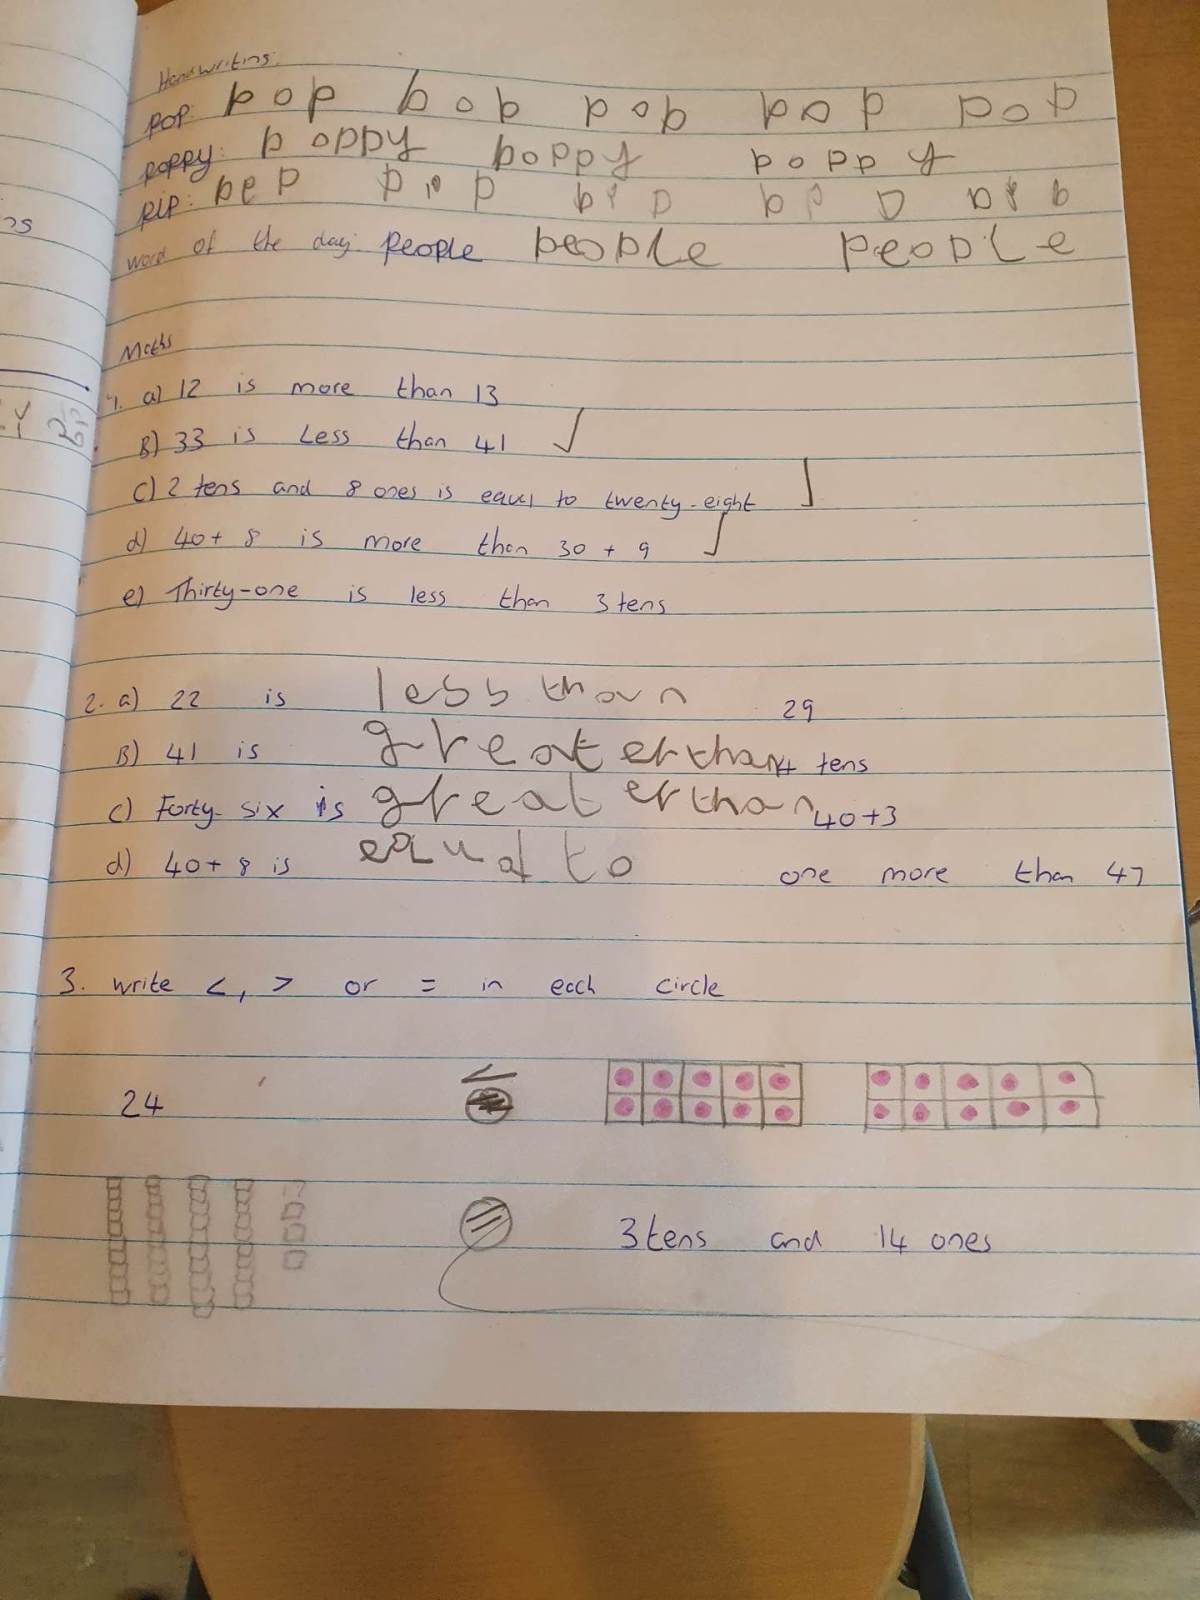 Handwriting.
pop: pop pop pop pop pop
poppy: poppy poppy poppy
pip: pep pip pip pip pip
word of the day: people people people
Maths
1. a) 12 is more than 13
B) 33 is Less than 41 ✓
c) 2 tens and 8 ones is equal to twenty-eight ✓
d) 40 + 8 is more than 30 + 9 ✓
e) Thirty-one is less than 3 tens
2. a) 22 is less than 29
B) 41 is greater than 4 tens
c) Forty-six is greater than 40+3
d) 40 + 8 is equal to one more than 47
3. write <, > or = in each circle
24 <
= 3 tens and 14 ones